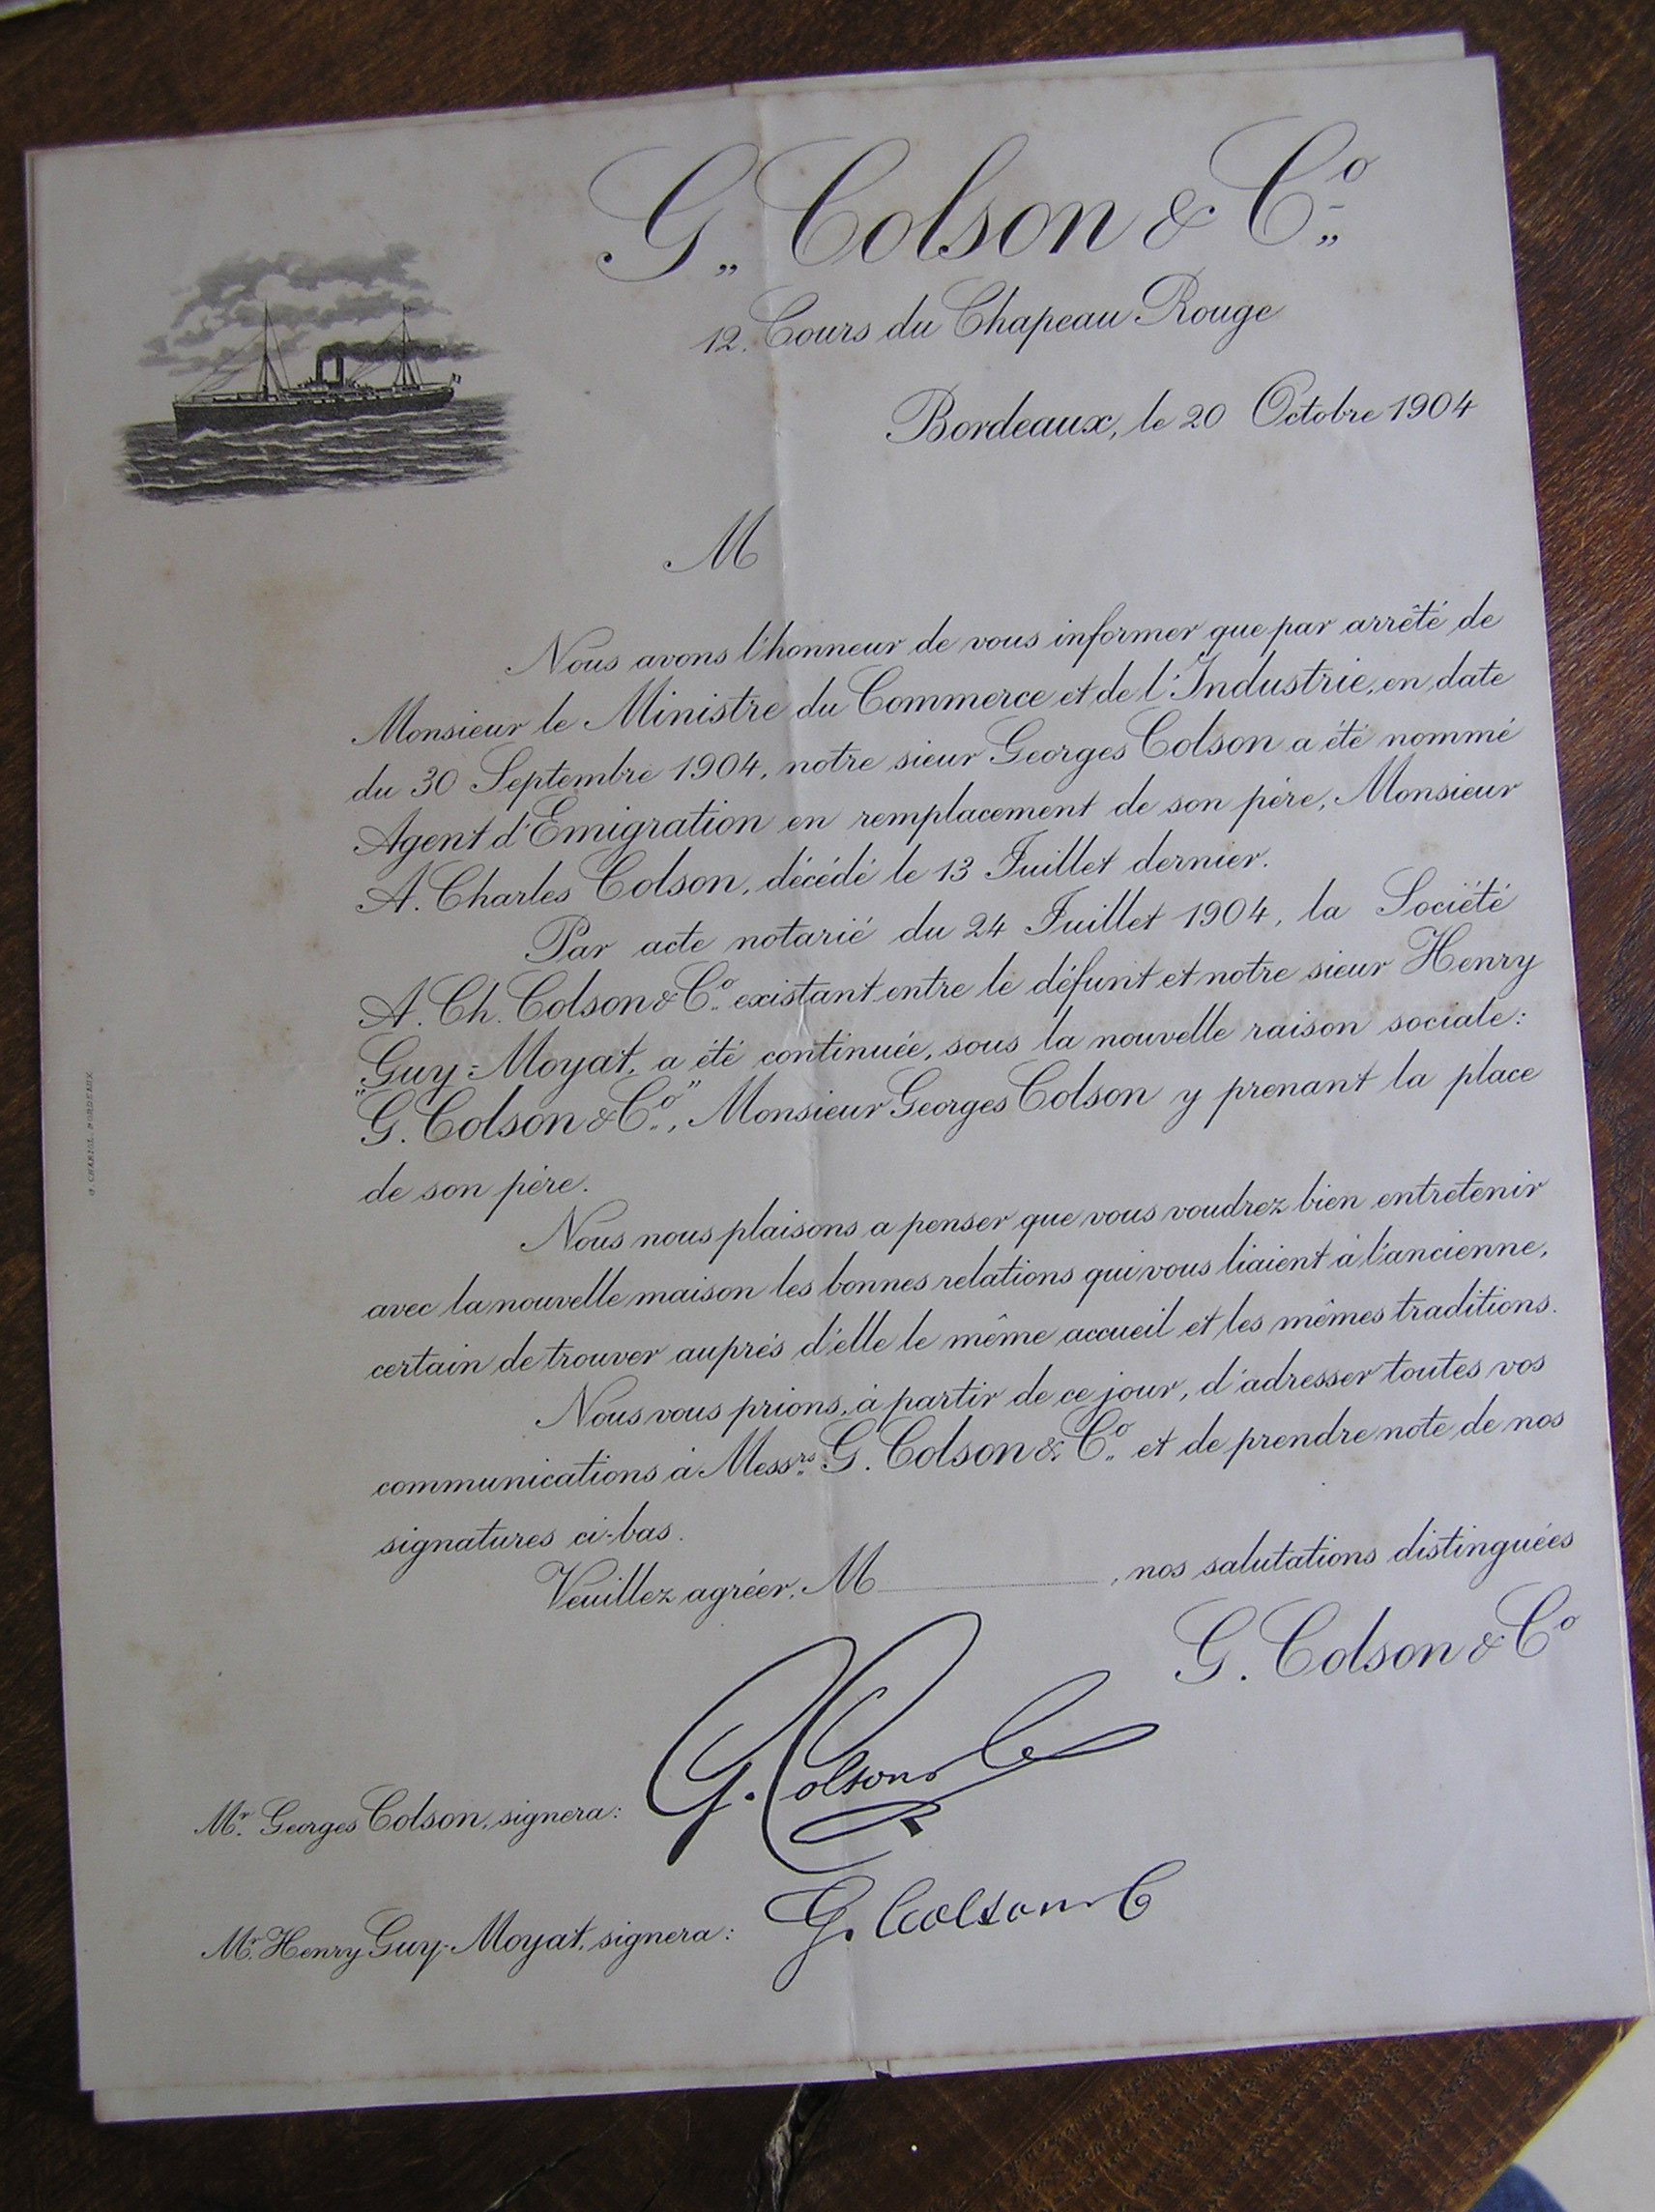 G. Colson & Cº
12. Cours du Chapeau Rouge
Bordeaux, le 20 Octobre 1904
M
Nous avons l'honneur de vous informer que par arrêté de
Monsieur le Ministre du Commerce et de l'Industrie, en date
du 30 Septembre 1904, notre sieur Georges Colson a été nommé
Agent d'Emigration en remplacement de son père, Monsieur
A. Charles Colson, décédé le 13 Juillet dernier.
Par acte notarié du 24 Juillet 1904, la Société
A. Ch. Colson & Cº existant entre le défunt et notre sieur Henry
Guy-Moyat, a été continuée, sous la nouvelle raison sociale:
"G. Colson & Cº", Monsieur Georges Colson y prenant la place
de son père.
Nous nous plaisons a penser que vous voudrez bien entretenir
avec la nouvelle maison les bonnes relations qui vous liaient à l'ancienne,
certain de trouver auprès d'elle le même accueil et les mêmes traditions.
Nous vous prions, à partir de ce jour, d'adresser toutes vos
communications à Messrs G. Colson & Cº et de prendre note de nos
signatures ci-bas.
Veuillez agréer, M , nos salutations distinguées
G. Colson & Cº
Mr. Georges Colson, signera: G. Colson & C
Mr. Henry Guy-Moyat, signera: G. Colson & C
G. CHARIOL. BORDEAUX